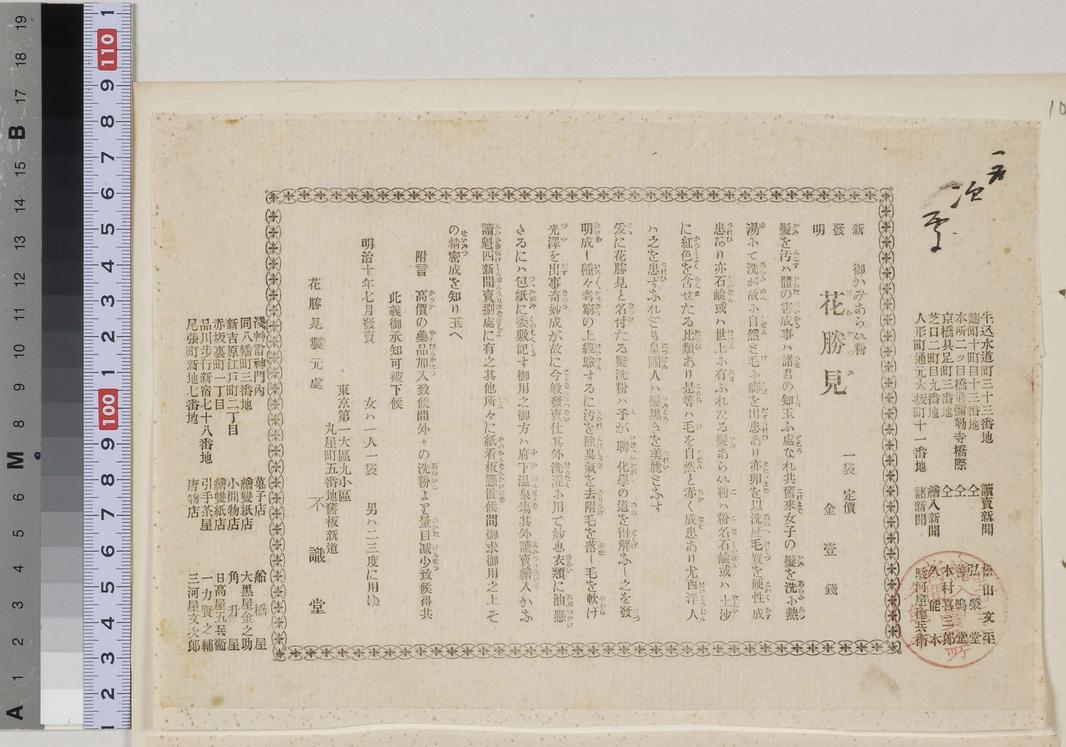 新發明
御かみあらひ粉
花勝見
一袋 定價 金壹錢
髮を汚ハ體の害成事ハ諸君の知玉ふ處なれ共舊來女子の髮を洗ふ熱
湯ふて洗が故ふ自然と毛ふ癖を出患あり亦卵を以洗ば毛質を硬性成
患あり亦石鹼或ハ世上ふ有ふれたる髮あらひ粉ハ粉名石鹼或ハ土沙
に紅色を含せたる比類あり是等ハ毛を自然と赤く成患あり尤西洋人
ハ之を患ずふれども皇國人ハ髮黑きを美麗とふす
爰に花勝見と名付たる髮洗粉ハ予が聊化學の道を得解ふし之を發
明成し種々考窮の上經驗するに汚を除臭氣を去附毛を落し毛を軟げ
光澤を出事奇妙成が故に今般發賣仕其外洗濯ふ用て妙也衣類に油懸
さるにハ包紙に委敷記す御用之御方ハ府下温泉塲其外讀賣讀人かふ
讀魁四新聞賣捌處に有之其他所々に紙看板懸置候間御求御用之上そ
の精密成を知り玉へ
附言 高價の藥品加入致候間外々の洗粉より量目减少致候得共
此義御承知可被下候
明治十年七月發賣 女ハ一人一袋 男ハ二三度に用ゆ
東京第一大區九小區
丸屋町五番地舊板新道
花勝見製元處 不識堂
牛込水道町三十三番地 讀賣新聞 松山文平
麹町十町目十三番地 仝 弘榮堂
本所二ッ目橋通彌勒寺橋際 仝
京橋具足町三番地 仝 本村喜三郎
芝口二町目九番地 繪入新聞 久能本
人形町通元大坂町十一番地 諸新聞 駿河屋德兵衛
淺草雷神門內 菓子店 船橋屋
同八幡町三番地 繪雙紙店 大黑屋金之助
新吉原江戸町二丁目 小間物店 角升屋
赤坂裏町一丁目 繪雙紙店 日高屋五兵衛
品川步行新宿七十八番地 引手茶屋 一力賢之輔
尾張町新地七番地 唐物店 三河屋文次郎